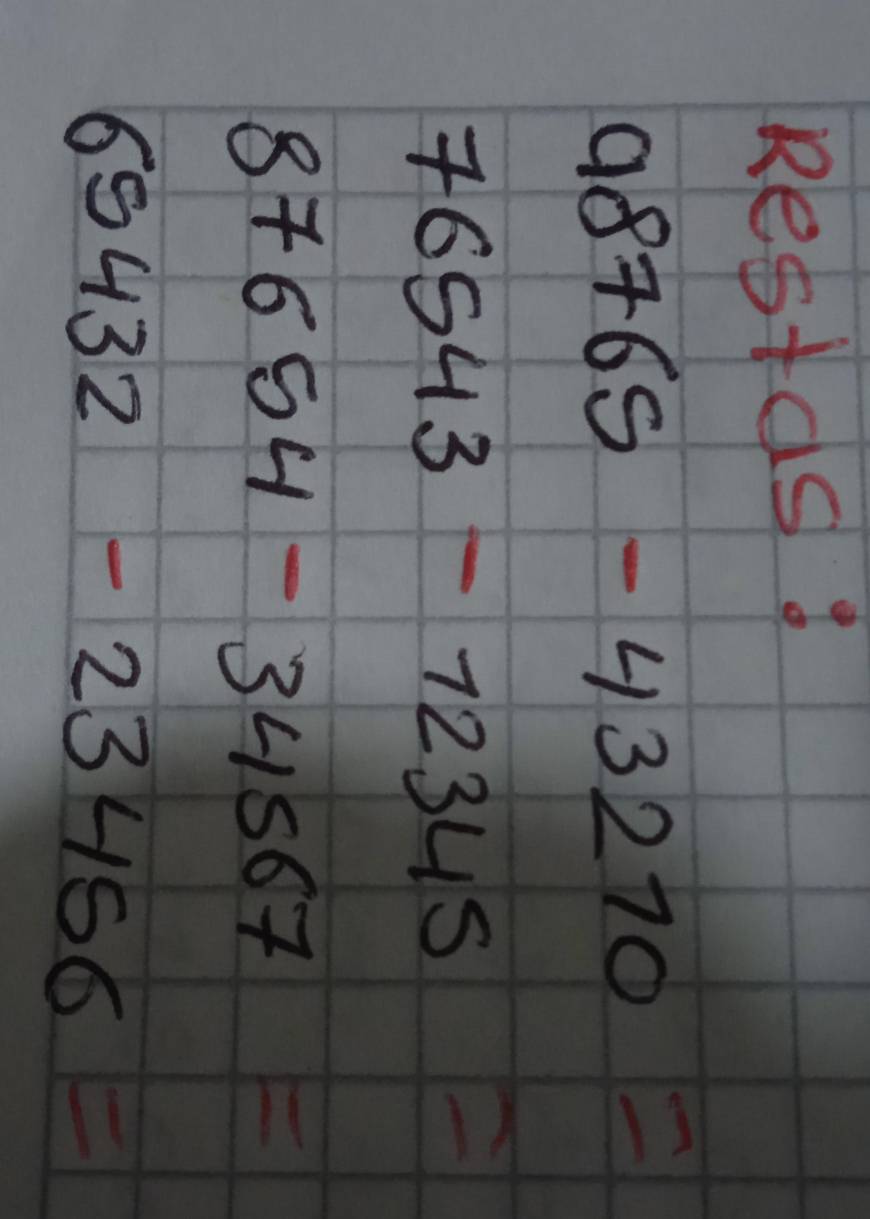 Restas:
98765 - 43210 =
76543 - 12345 =
87654 - 34567 =
65432 - 23456 =